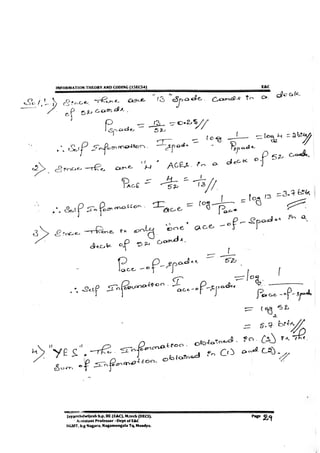 INFORMATION THEORY AND CODING (15EC54) E&C
Sol: 1) Since There are "13" Spade cards in a deck
of 52 cards.
P spade = 13/52 = 0.25//
∴ Self Information. I spade = log 1/P spade = log 4 = 2 bits//
2) Since The are "4" ACES in a deck of 52 cards.
P ACE = 4/52 = 1/13 //
∴ Self Information. I ace = log 1/P ace = log 13 = 3.7 bits
3) Since There is only "one" ace-of-Spades in a
deck of 52 cards.
P ace-of-spades = 1/52
∴ Self Information I ace-of-spades = log 1/P ace-of-spades
= log₂ 52
= 5.7 bits//
4) "YES". The Information obtained in (3) is the
Sum of Information obtained in (1) and (2).//
B.E (E&C), M.tech (DECS), Page 29
Assistant Professor - Dept of E&C
Nagara, Nagamangala Tq, Mandya.